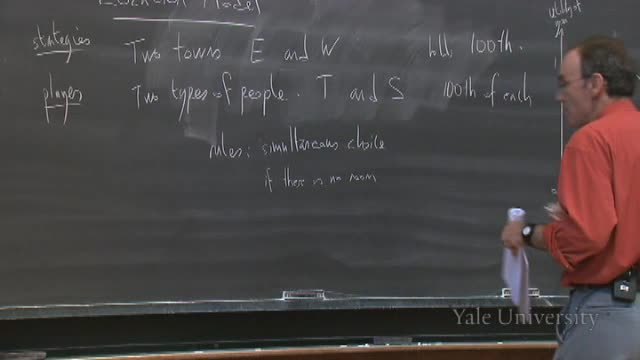 Location Model
strategies Two towns E and W holds 100th.
players Two types of people. T and S 100th of each
rules: simultaneous choice
if there is no room
utility of
1
Yale University